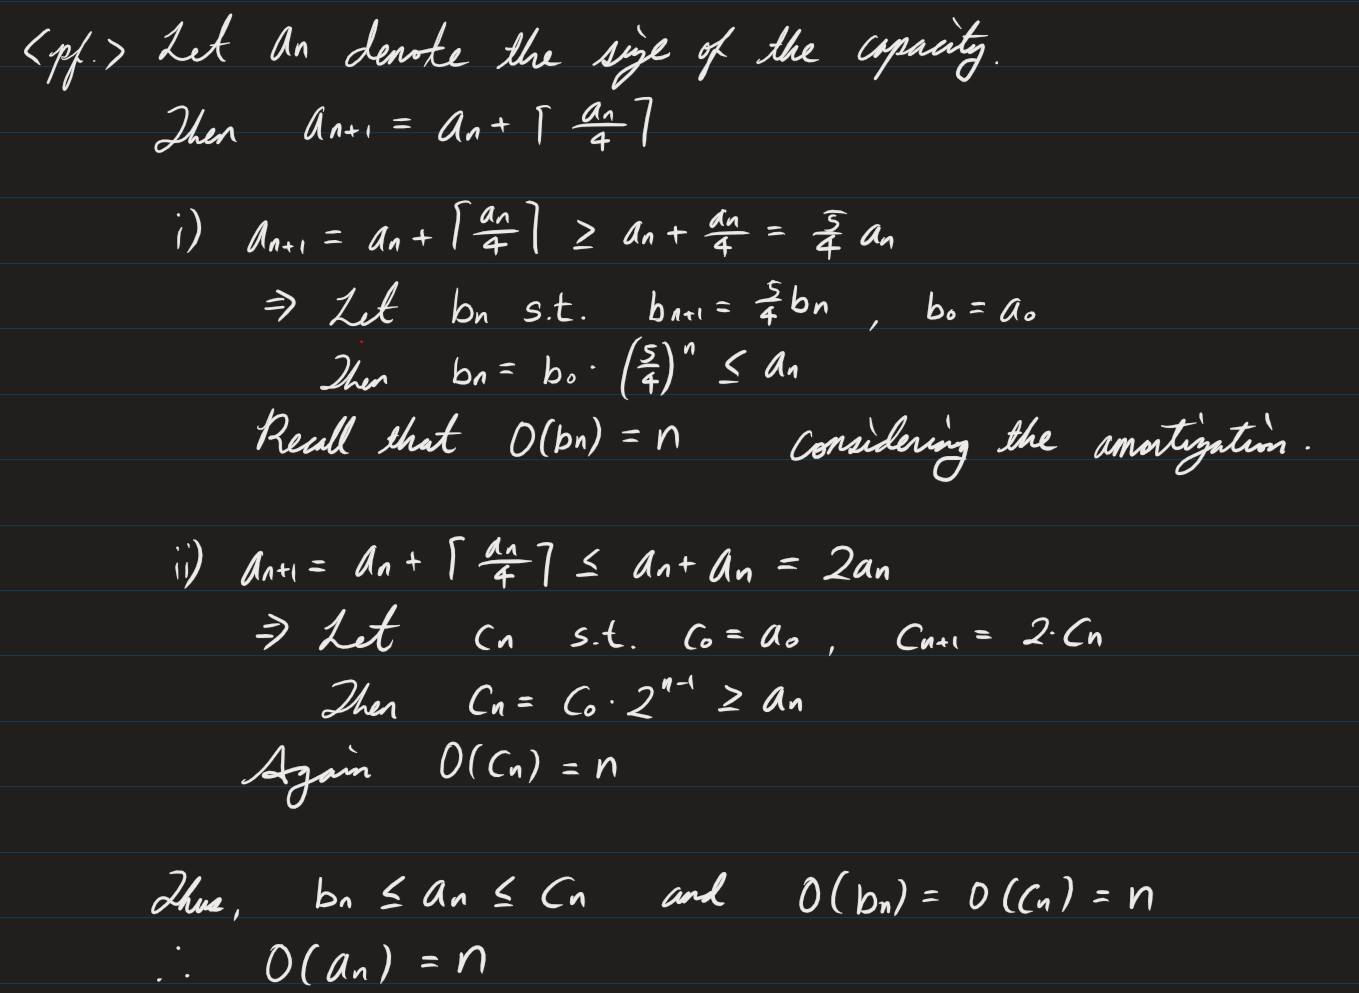 <pf.> Let an denote the size of the capacity.
Then an+1 = an + ⌈an/4⌉
i) an+1 = an + ⌈an/4⌉ ≥ an + an/4 = 5/4 an
⇒ Let bn s.t. bn+1 = 5/4 bn , b0 = a0
Then bn = b0 · (5/4)^n ≤ an
Recall that O(bn) = n considering the amortization.
ii) an+1 = an + ⌈an/4⌉ ≤ an + an = 2an
⇒ Let cn s.t. c0 = a0 , cn+1 = 2·cn
Then cn = c0 · 2^n-1 ≥ an
Again O(cn) = n
Thus, bn ≤ an ≤ cn and O(bn) = O(cn) = n
∴ O(an) = n